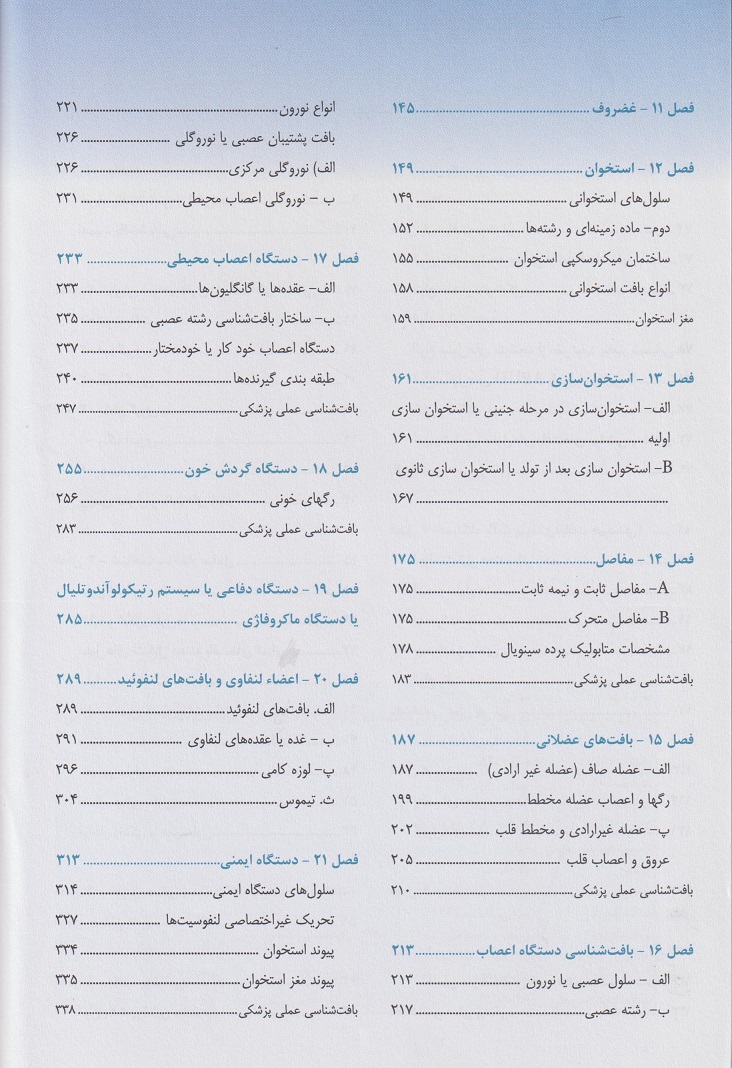 فصل ۱۱ - غضروف ............ ۱۴۵
فصل ۱۲ - استخوان ............ ۱۴۹
سلول‌های استخوانی ............ ۱۴۹
دوم- ماده زمینه‌ای و رشته‌ها ............ ۱۵۲
ساختمان میکروسکپی استخوان ............ ۱۵۵
انواع بافت استخوانی ............ ۱۵۸
مغز استخوان ............ ۱۵۹
فصل ۱۳ - استخوان‌سازی ............ ۱۶۱
الف- استخوان‌سازی در مرحله جنینی یا استخوان سازی
اولیه ............ ۱۶۱
B- استخوان سازی بعد از تولد یا استخوان سازی ثانوی
............ ۱۶۷
فصل ۱۴ - مفاصل ............ ۱۷۵
A- مفاصل ثابت و نیمه ثابت ............ ۱۷۵
B- مفاصل متحرک ............ ۱۷۵
مشخصات متابولیک پرده سینویال ............ ۱۷۸
بافت‌شناسی عملی پزشکی ............ ۱۸۳
فصل ۱۵ - بافت‌های عضلانی ............ ۱۸۷
الف- عضله صاف (عضله غیر ارادی) ............ ۱۸۷
رگها و اعصاب عضله مخطط ............ ۱۹۹
پ- عضله غیرارادی و مخطط قلب ............ ۲۰۲
عروق و اعصاب قلب ............ ۲۰۵
بافت‌شناسی عملی پزشکی ............ ۲۱۰
فصل ۱۶ - بافت‌شناسی دستگاه اعصاب ............ ۲۱۳
الف - سلول عصبی یا نورون ............ ۲۱۳
ب- رشته عصبی ............ ۲۱۷
انواع نورون ............ ۲۲۱
بافت پشتیبان عصبی یا نوروگلی ............ ۲۲۶
الف) نوروگلی مرکزی ............ ۲۲۶
ب - نوروگلی اعصاب محیطی ............ ۲۳۱
فصل ۱۷ - دستگاه اعصاب محیطی ............ ۲۳۳
الف- عقده‌ها یا گانگلیون‌ها ............ ۲۳۳
ب- ساختار بافت‌شناسی رشته عصبی ............ ۲۳۵
دستگاه اعصاب خود کار یا خودمختار ............ ۲۳۷
طبقه بندی گیرنده‌ها ............ ۲۴۰
بافت‌شناسی عملی پزشکی ............ ۲۴۷
فصل ۱۸ - دستگاه گردش خون ............ ۲۵۵
رگهای خونی ............ ۲۵۶
بافت‌شناسی عملی پزشکی ............ ۲۸۳
فصل ۱۹ - دستگاه دفاعی یا سیستم رتیکولوآندوتلیال
یا دستگاه ماکروفاژی ............ ۲۸۵
فصل ۲۰ - اعضاء لنفاوی و بافت‌های لنفوئید ............ ۲۸۹
الف. بافت‌های لنفوئید ............ ۲۸۹
ب - غده یا عقده‌های لنفاوی ............ ۲۹۱
پ- لوزه کامی ............ ۲۹۶
ث. تیموس ............ ۳۰۴
فصل ۲۱ - دستگاه ایمنی ............ ۳۱۳
سلول‌های دستگاه ایمنی ............ ۳۱۴
تحریک غیراختصاصی لنفوسیت‌ها ............ ۳۲۷
پیوند استخوان ............ ۳۳۴
پیوند مغز استخوان ............ ۳۳۵
بافت‌شناسی عملی پزشکی ............ ۳۳۸